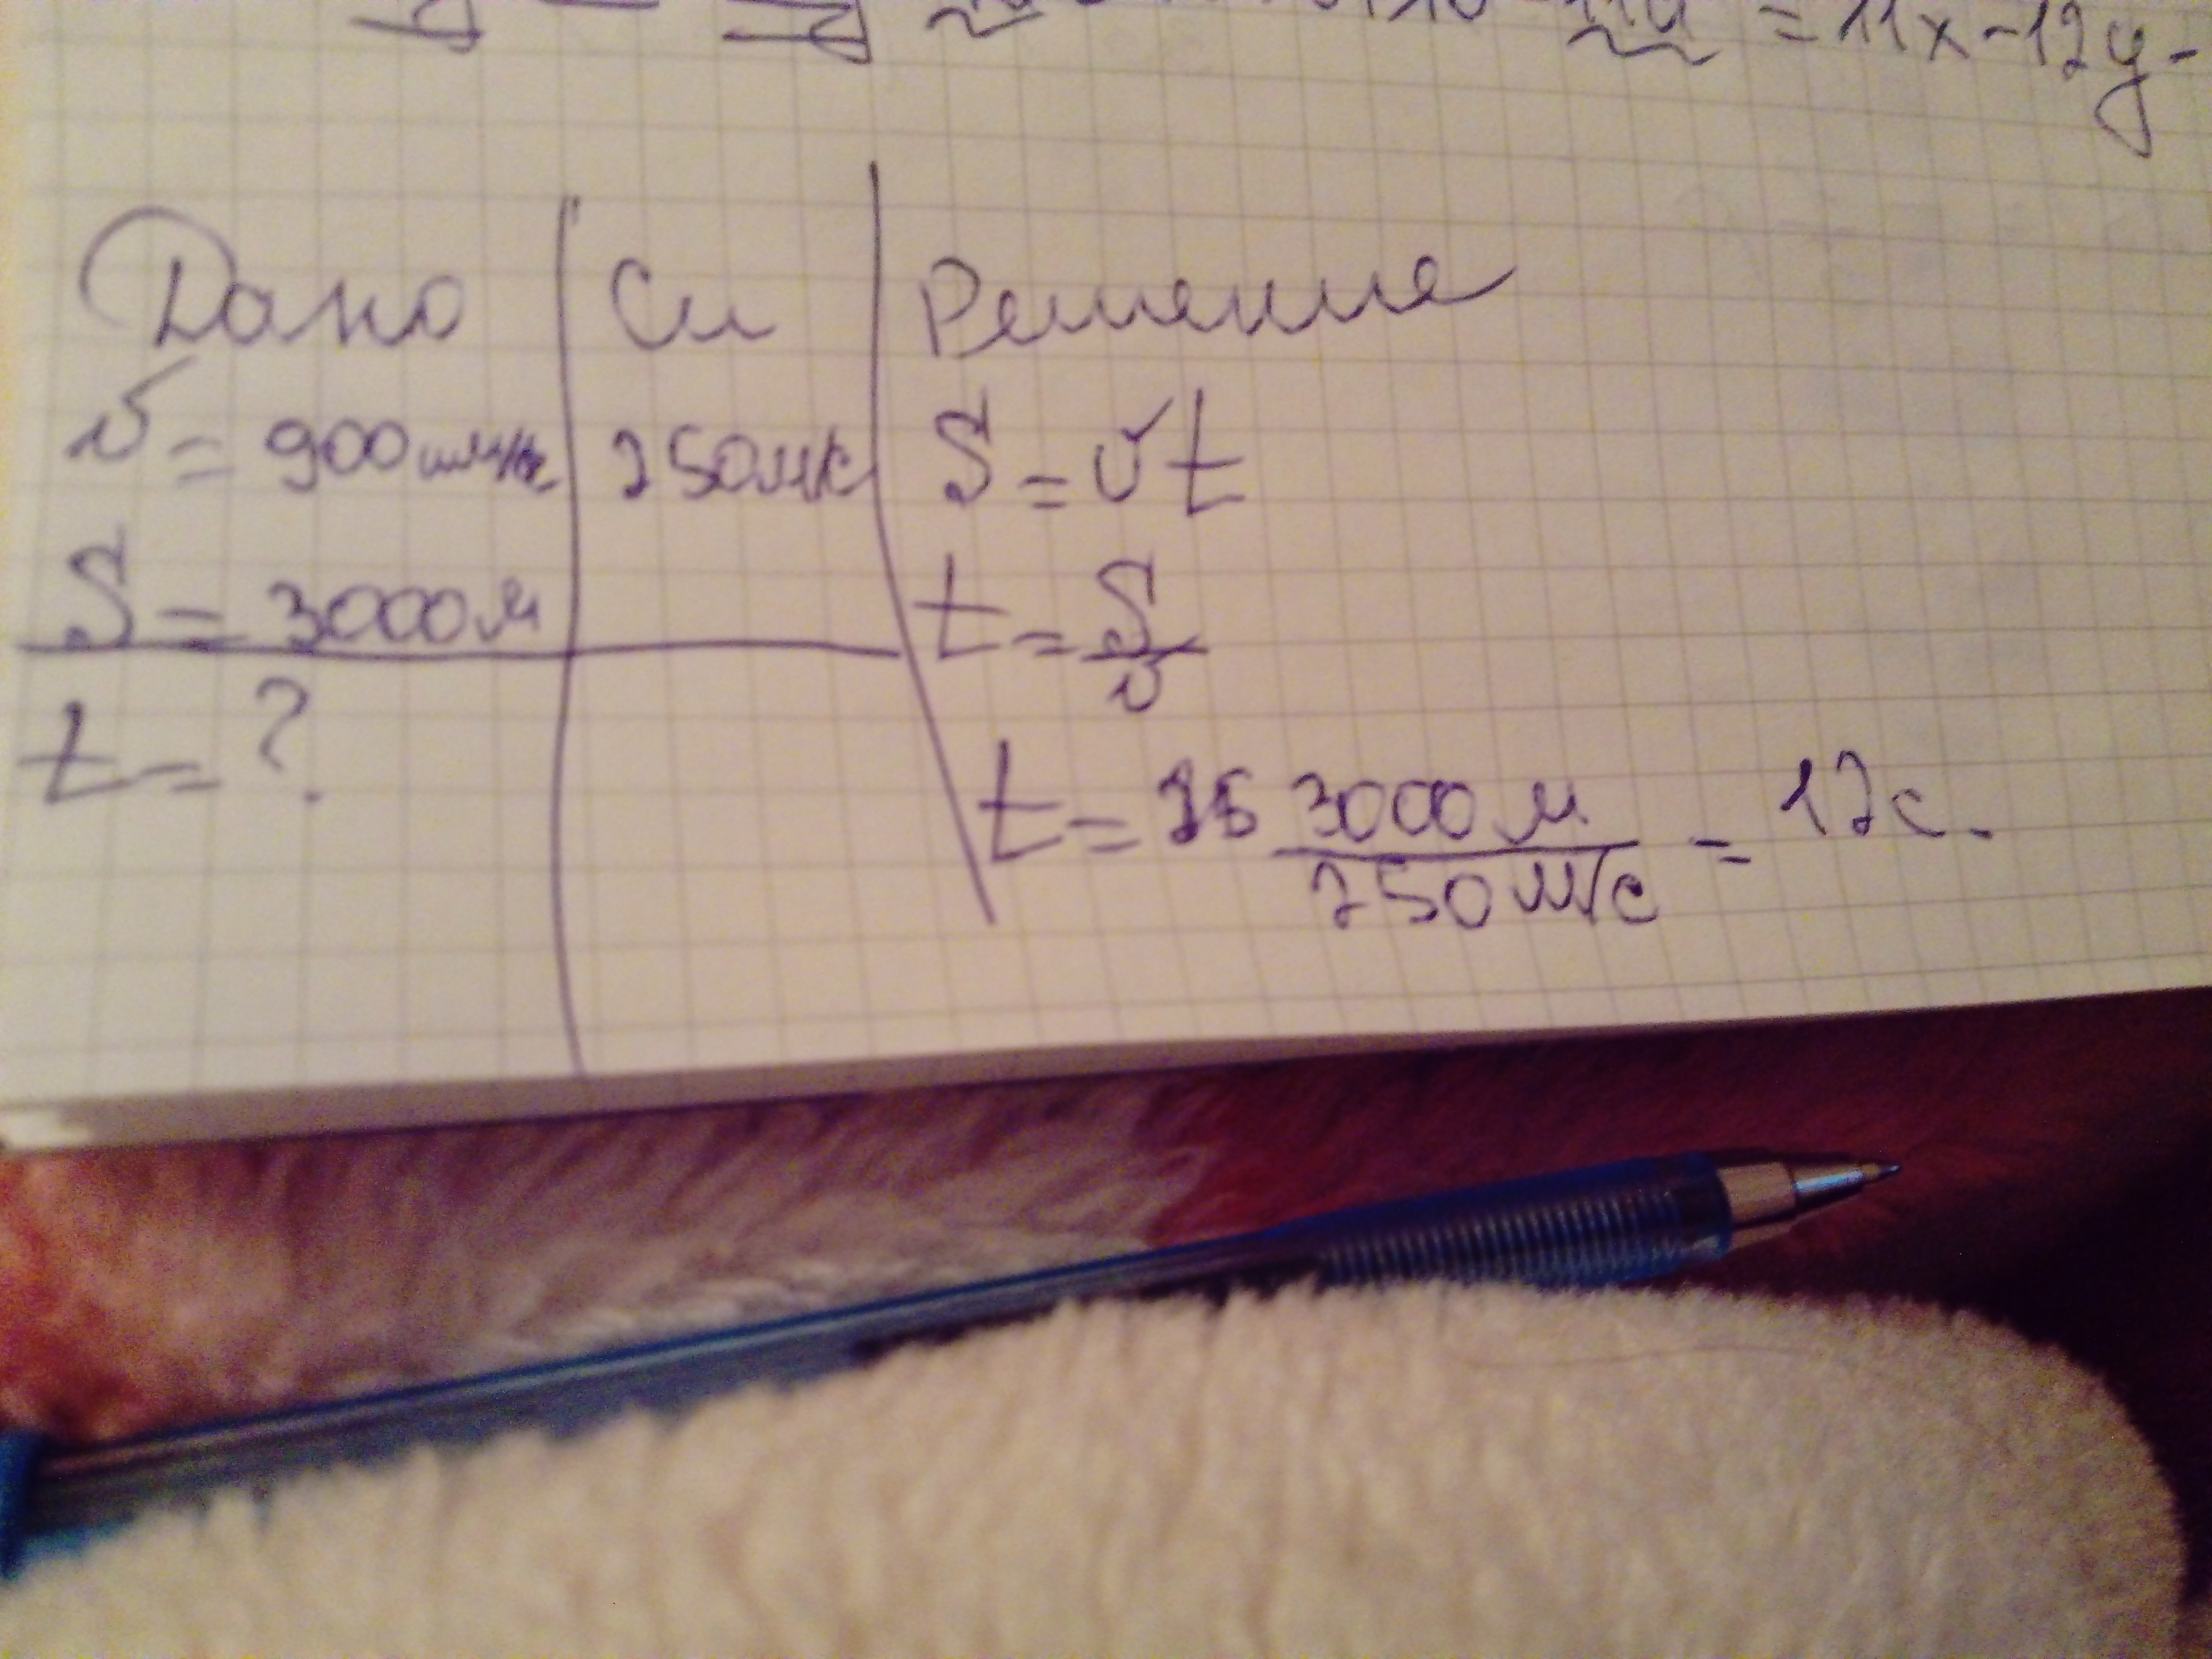 = 11x - 12y -
Дано Си Решение
v = 900 250м/с S = vt
S = 3000м t = S/v
t = ?
t = 3000м/250м/с = 12с.